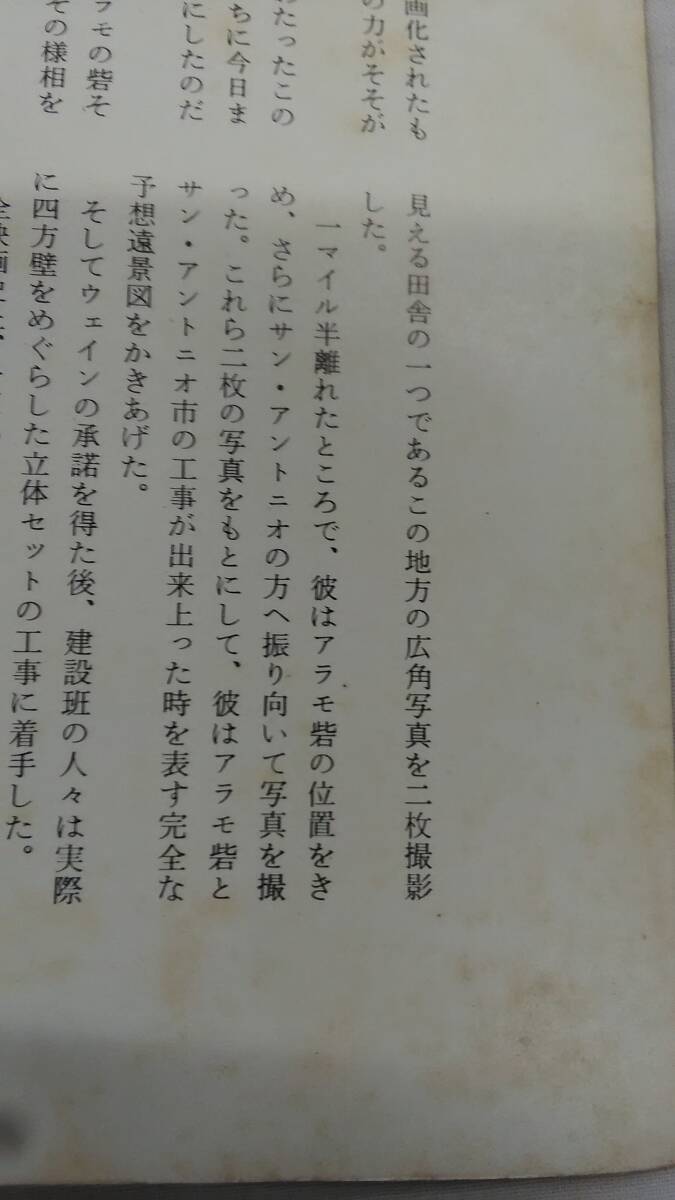 画化されたも
の力がそそが
わたったこの
ちに今日ま
にしたのだ
ラモの砦そ
その様相を
見える田舎の一つであるこの地方の広角写真を二枚撮影
した。
一マイル半離れたところで、彼はアラモ砦の位置をき
め、さらにサン・アントニオの方へ振り向いて写真を撮
った。これら二枚の写真をもとにして、彼はアラモ砦と
サン・アントニオ市の工事が出来上った時を表す完全な
予想遠景図をかきあげた。
そしてウェインの承諾を得た後、建設班の人々は実際
に四方壁をめぐらした立体セットの工事に着手した。